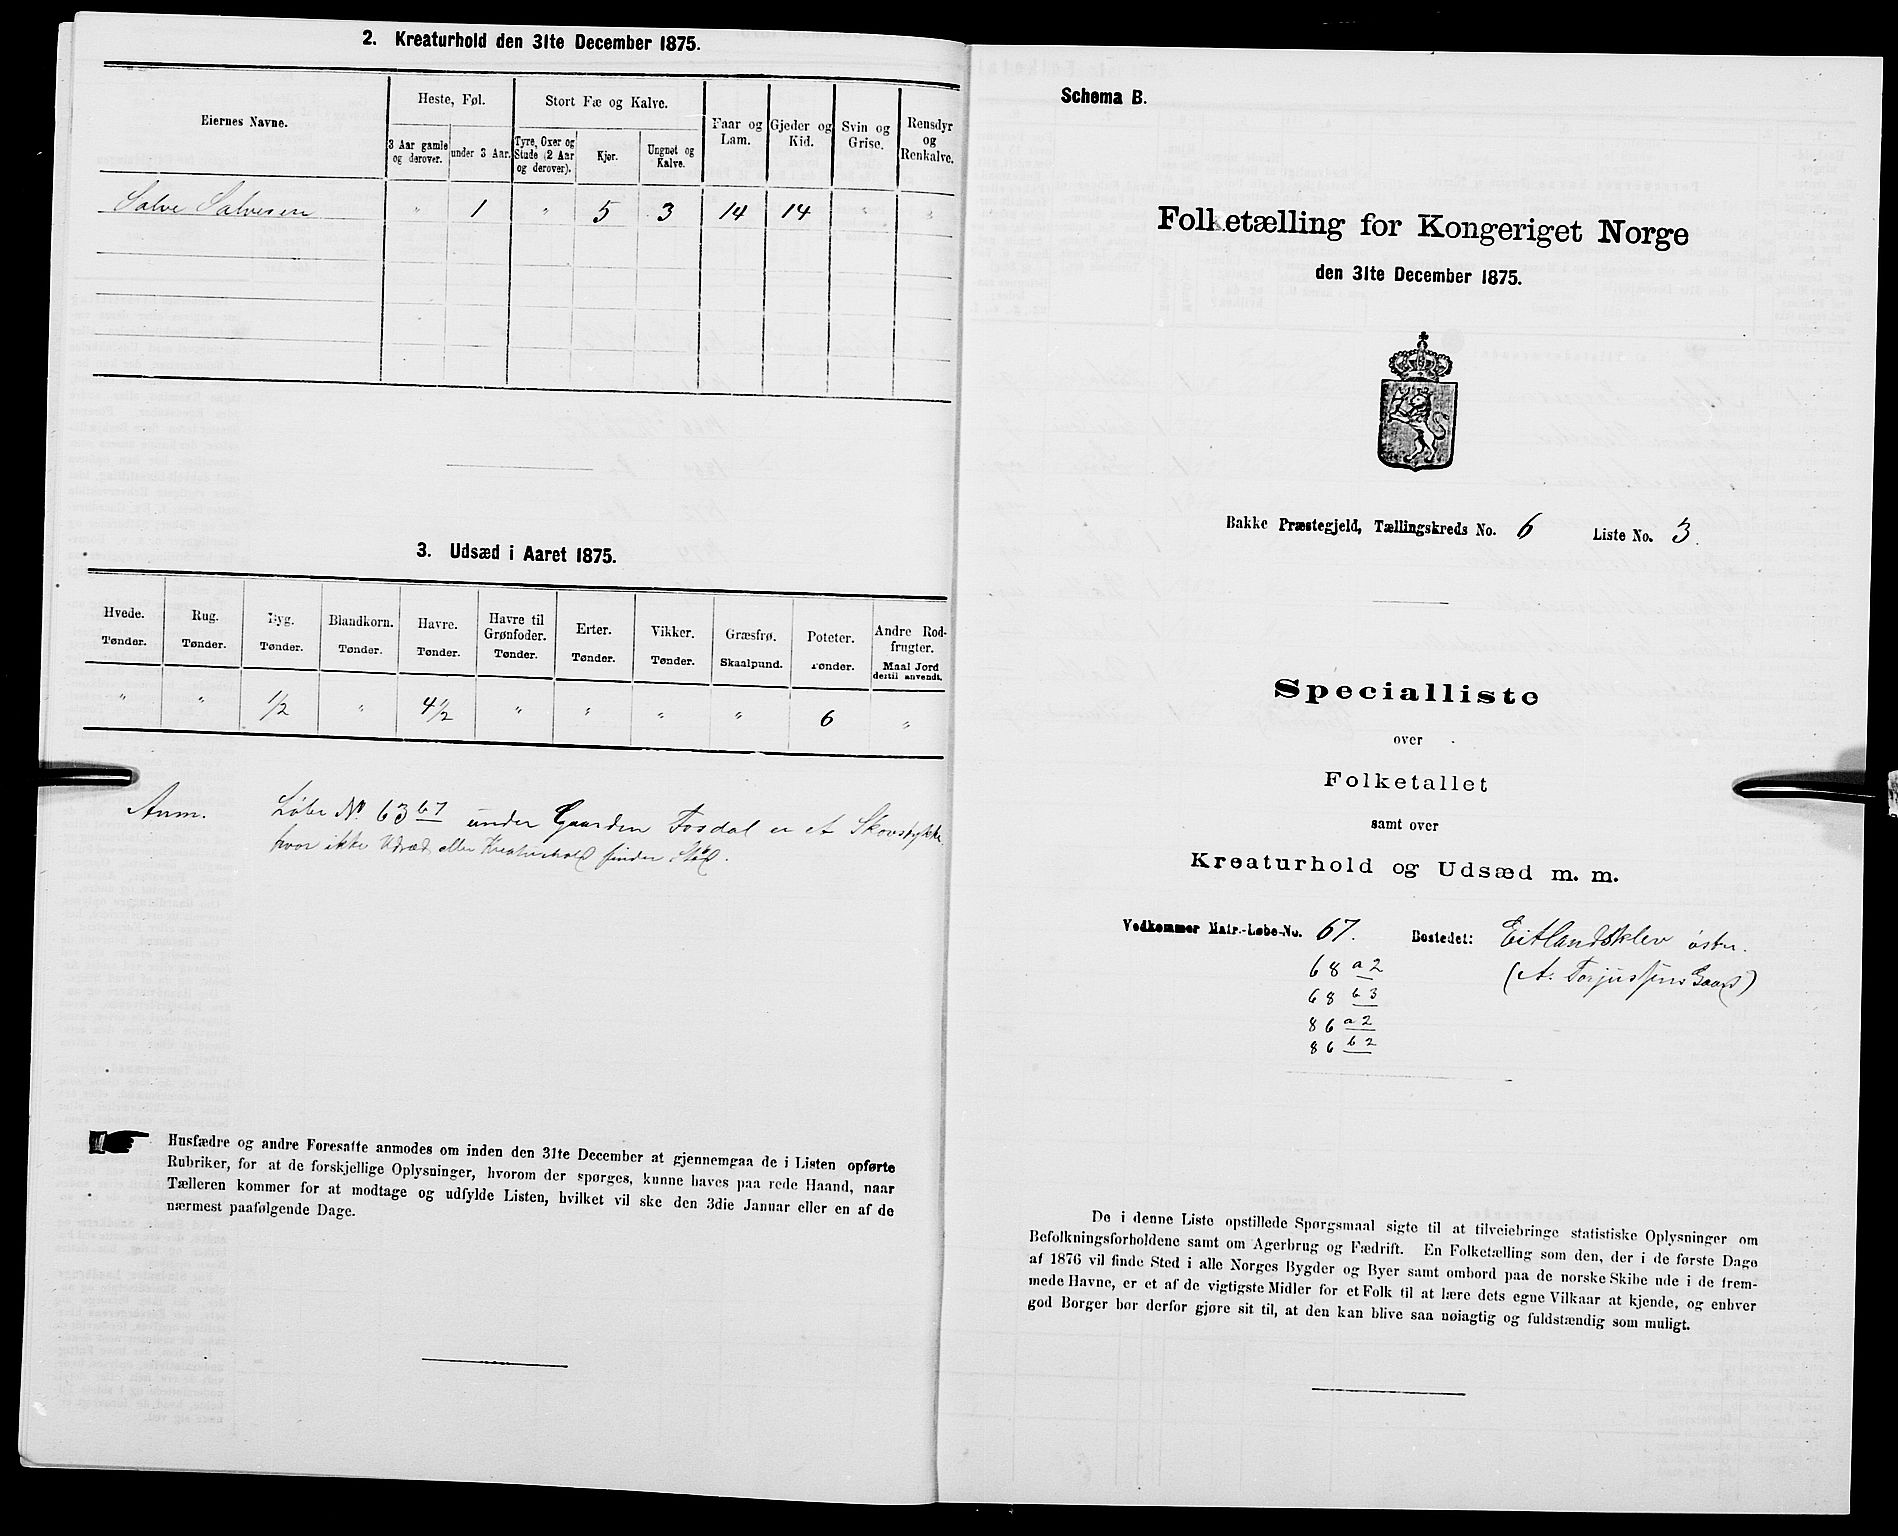 2. Kreaturhold den 31te December 1875.
Eiernes Navne.
Heste, Føl.
3 Aar gamle og derover.
under 3 Aar.
Stort Fæ og Kalve.
Tyre, Oxer og Stude (2 Aar og derover).
Kjør.
Ungnøt og Kalve.
Faar og Lam.
Gjeder og Kid.
Svin og Grise.
Rensdyr og Renkalve.
Salve Salvesen " 1 " 5 3 14 14 " "
3. Udsæd i Aaret 1875.
Hvede. Rug. Byg. Blandkorn. Havre. Havre til Grønfoder. Erter. Vikker. Græsfrø. Poteter. Andre Rodfrugter.
Tønder. Tønder. Tønder. Tønder. Tønder. Tønder. Tønder. Tønder. Skaalpund. Tønder. Maal Jord dertil anvendt.
" " 1/2 " 4 1/2 " " " " 6 "
Anm. Løbe No 63 b7 under Gaarden Fosdal er et Skovstykke
hvor ikke Udsæd eller Kreaturhold finder Sted.
Husfædre og andre Foresatte anmodes om inden den 31te December at gjennemgaa de i Listen opførte
Rubriker, for at de forskjellige Oplysninger, hvorom der spørges, kunne haves paa rede Haand, naar
Tælleren kommer for at modtage og udfylde Listen, hvilket vil ske den 3die Januar eller en af de
nærmest paafølgende Dage.
Schema B.
Folketælling for Kongeriget Norge
den 31te December 1875.
Bakke Præstegjeld, Tællingskreds No. 6 Liste No. 3.
Specialliste
over
Folketallet
samt over
Kreaturhold og Udsæd m. m.
Vedkommer Matr.-Løbe-No. 67. Bostedet: Eitlandsklev østre.
68 a2 (A. Torjussens Gaard)
68 b3
86 a2
86 b2
De i denne Liste opstillede Spørgsmaal sigte til at tilveiebringe statistiske Oplysninger om
Befolkningsforholdene samt om Agerbrug og Fædrift. En Folketælling som den, der i de første Dage
af 1876 vil finde Sted i alle Norges Bygder og Byer samt ombord paa de norske Skibe ude i de frem-
mede Havne, er et af de vigtigste Midler for et Folk til at lære dets egne Vilkaar at kjende, og enhver
god Borger bør derfor gjøre sit til, at den kan blive saa nøiagtig og fuldstændig som muligt.